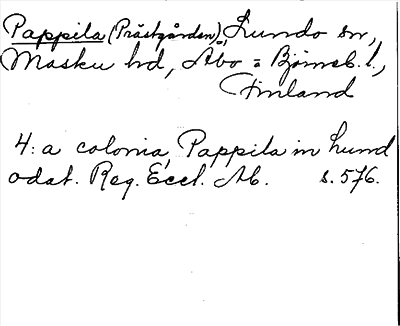 Pappila (Prästgården), Lundo sn,
Masku hd, Åbo = Björneb. l.,
Finland
4: a colonia, Pappila in Lund
odat. Reg. Eccl. Ab. s. 576.